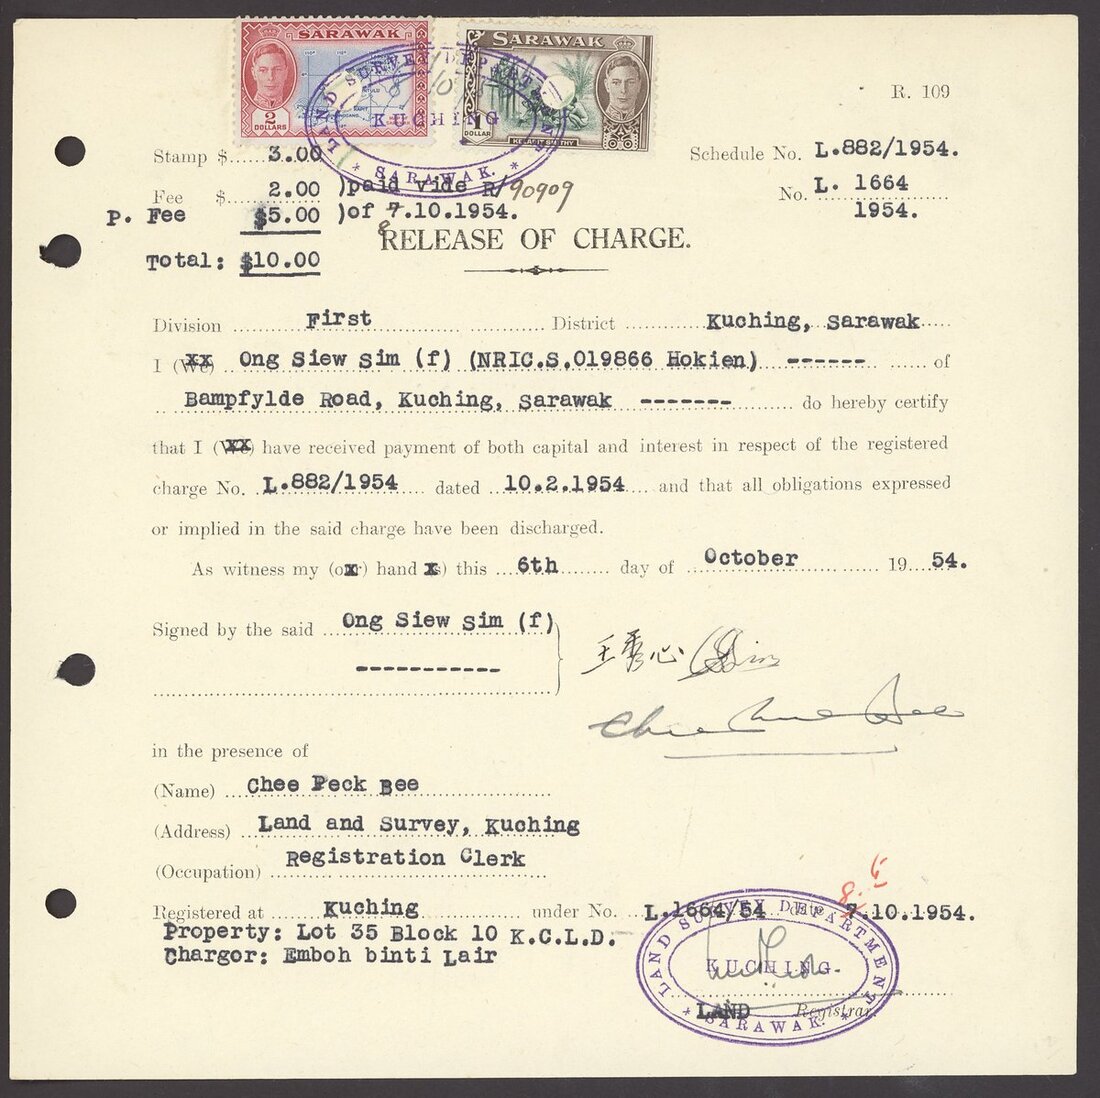 SARAWAK
2
DOLLARS
SARAWAK
1
DOLLAR
LAND SURVEY DEPARTMENT
KUCHING
* SARAWAK. *
R. 109
Stamp $ 3.00
Schedule No. L.882/1954.
Fee $ 2.00 )paid vide R/90909
No. L. 1664
P. Fee $5.00 )of 7.10.1954.
8
1954.
Total: $10.00
RELEASE OF CHARGE.
Division First District Kuching, Sarawak
I (We) xx Ong Siew Sim (f) (NRIC.S.019866 Hokien) ------ of
Bampfylde Road, Kuching, Sarawak ------- do hereby certify
that I (We) xx have received payment of both capital and interest in respect of the registered
charge No. L.882/1954 dated 10.2.1954 and that all obligations expressed
or implied in the said charge have been discharged.
As witness my (our) hand (s) this 6th day of October 1954.
Signed by the said Ong Siew Sim (f)
-----------
王秀心
in the presence of
(Name) Chee Peck Bee
(Address) Land and Survey, Kuching
(Occupation) Registration Clerk
Registered at Kuching under No. L.1664/54 date 7.10.1954.
8
Property: Lot 35 Block 10 K.C.L.D.
Chargor: Emboh binti Lair
LAND SURVEY DEPARTMENT
KUCHING.
* SARAWAK. *
LAND Registrar